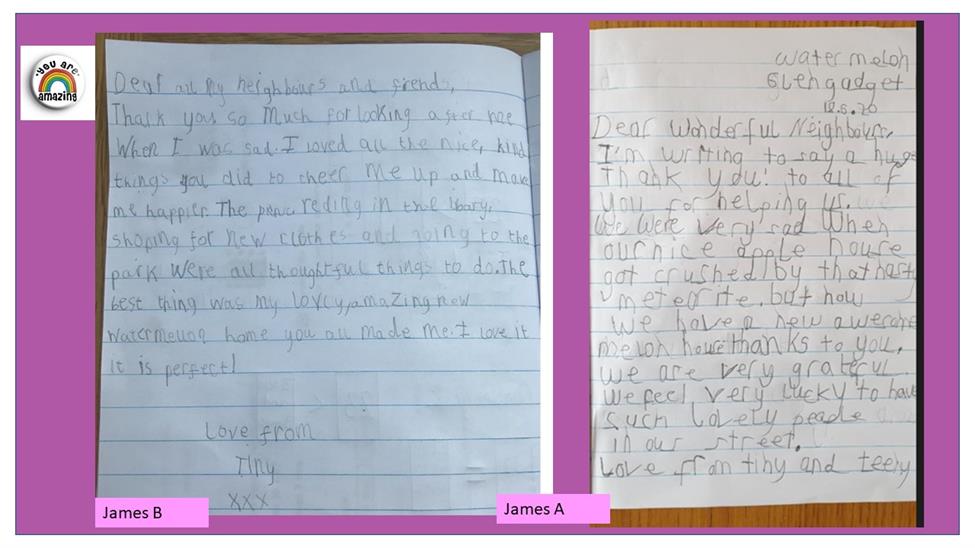 you are
amazing
Dear all my neighbours and firends,
Thank you so much for looking after me
When I was sad. I loved all the nice, kind
things you did to cheer me up and make
me happier. The picnic, reding in the libary,
shoping for new clothes and going to the
park were all thoughtful things to do. The
best thing was my lovely, amazing new
home you all made me. I love it
it is perfect!
Love from
Tiny
xxx
James B
Watermelon
Glengadget
12.6.20
Dear Wonderful Neighbours,
I'm writing to say a huge
Thank you! to all of
you for helping us.
We were very sad when
our nice apple house
got crushed by that nasty
meteorite. but now
we have a new awesome
melon house thanks to you.
we are very grateful.
we feel very lucky to have
such lovely people
in our street.
Love from tiny and teeny
James A